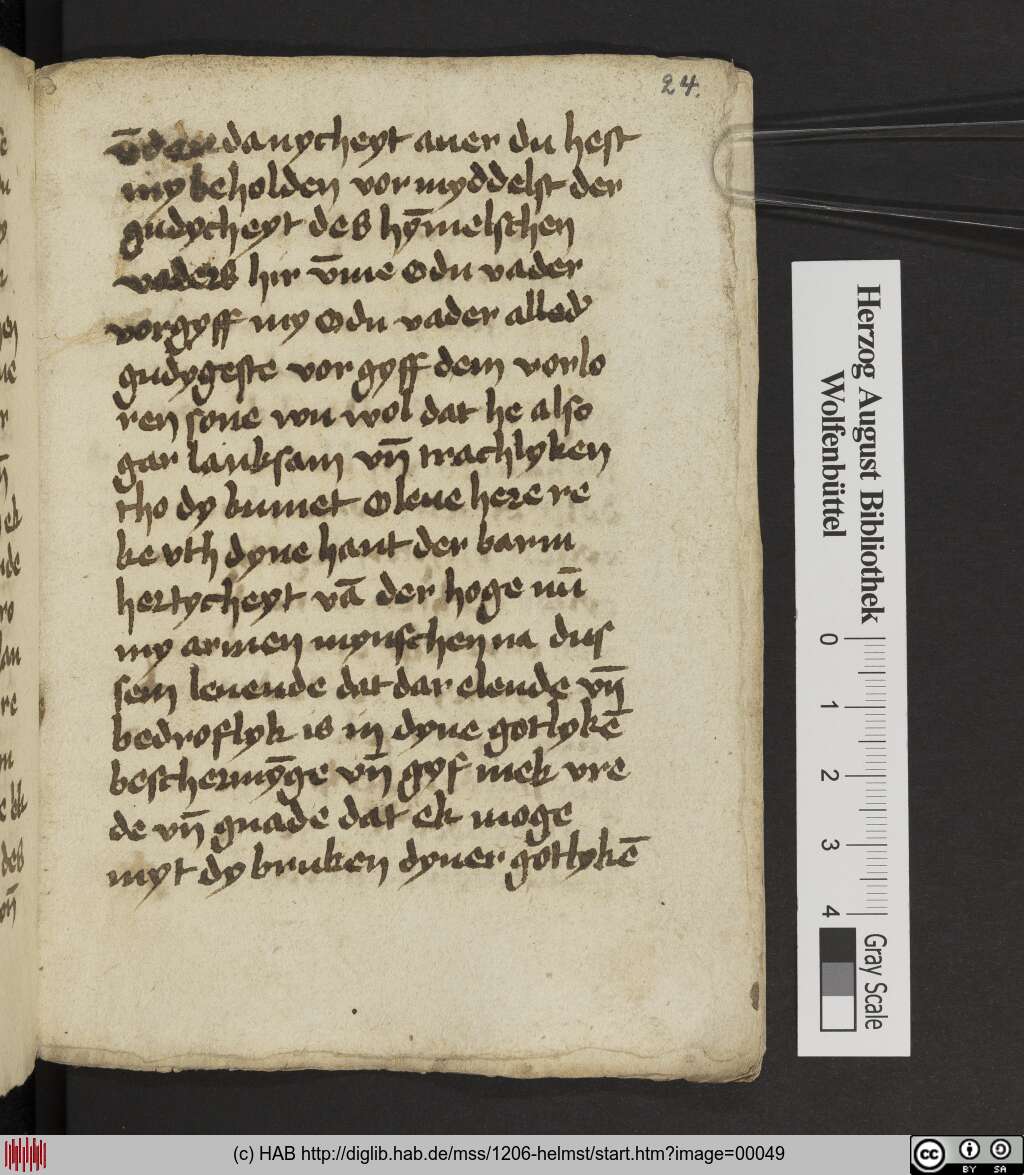 24.
vn̄dandanycheyt auer du hest
my beholden vormyddelst der
gudycheyt des hȳmelschen
vaders hir v̄me O du vader
vorgyff my O du vader alled'
gudygeste vorgyff dem vorlo
ren sone wu wol dat he also
gar lanksam vn̄ trachlyken
tho dy kumet O leue here re
ke vth dyne hant der barm
hertycheyt vā der hoge nū
my armen mynschen na dus
sem leuende dat dar elende vn̄
bedroflyk is in dyne gotlykē
beschermȳge vn̄ gyf mek vre
de vn̄ gnade dat ek moge
myt dy bruken dyner gotlykē
Herzog August Bibliothek
Wolfenbüttel
0 1 2 3 4
Gray Scale
(c) HAB http://diglib.hab.de/mss/1206-helmst/start.htm?image=00049
cc BY SA